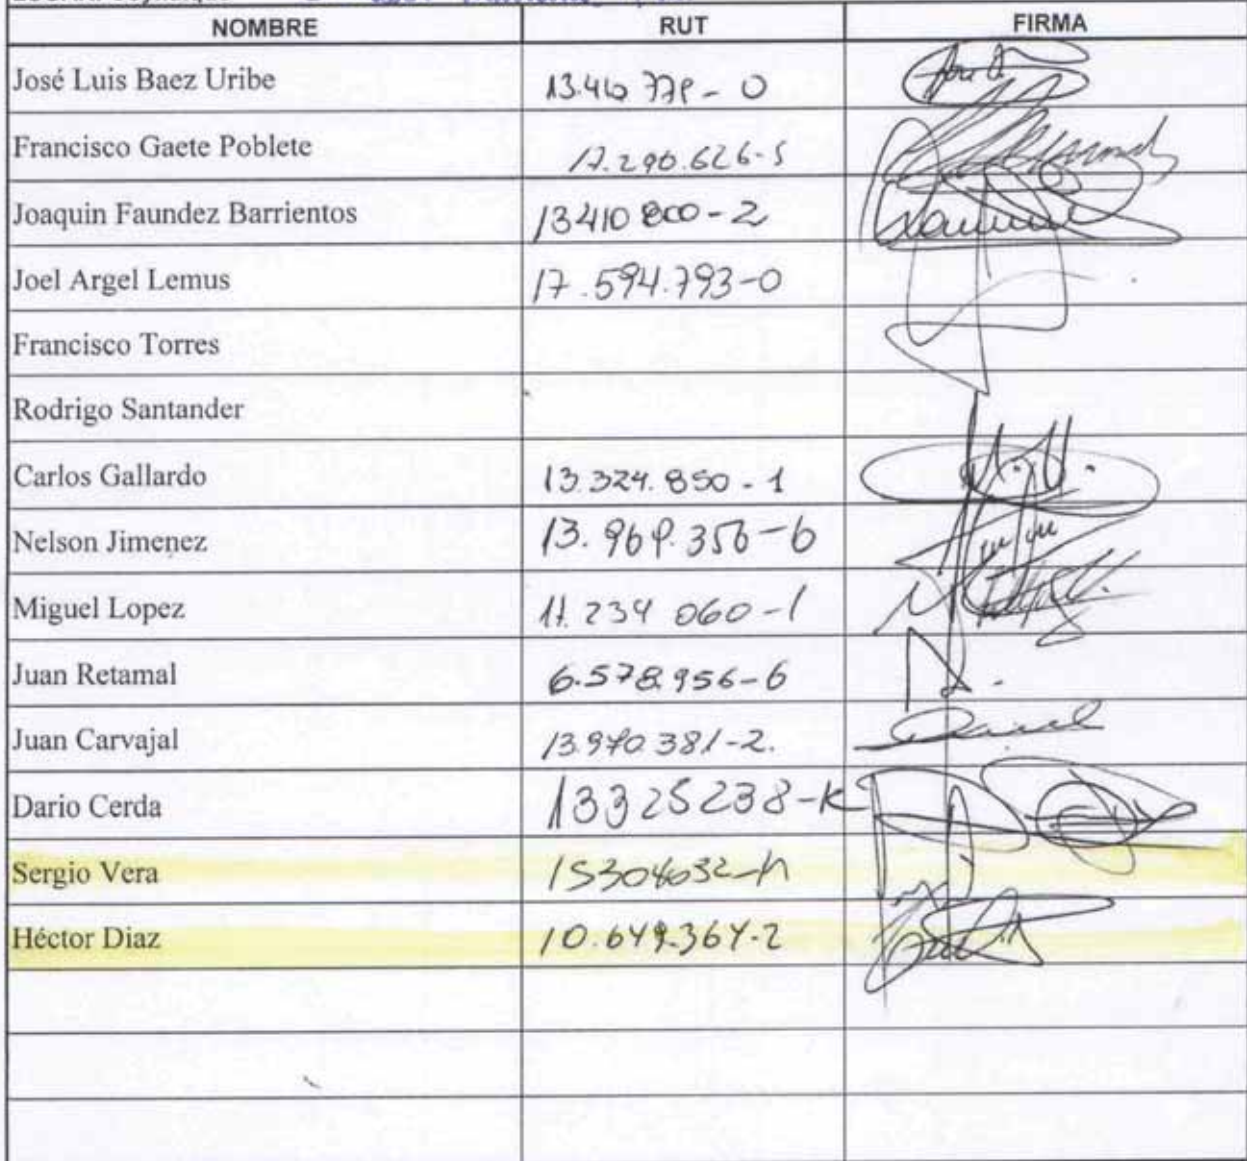 NOMBRE RUT FIRMA
José Luis Baez Uribe
Francisco Gaete Poblete 17.290.626-5
Joaquin Faundez Barrientos 13410800-2
Joel Argel Lemus 17.594.793-0
Francisco Torres
Rodrigo Santander
Carlos Gallardo 13.324.850-1
Nelson Jimenez 13.969.356-6
Miguel Lopez 11.234 060-1
Juan Retamal 6.578.956-6
Juan Carvajal 13.970.381-2.
Dario Cerda 13325238-K
Sergio Vera
Héctor Diaz 10.649.364-2